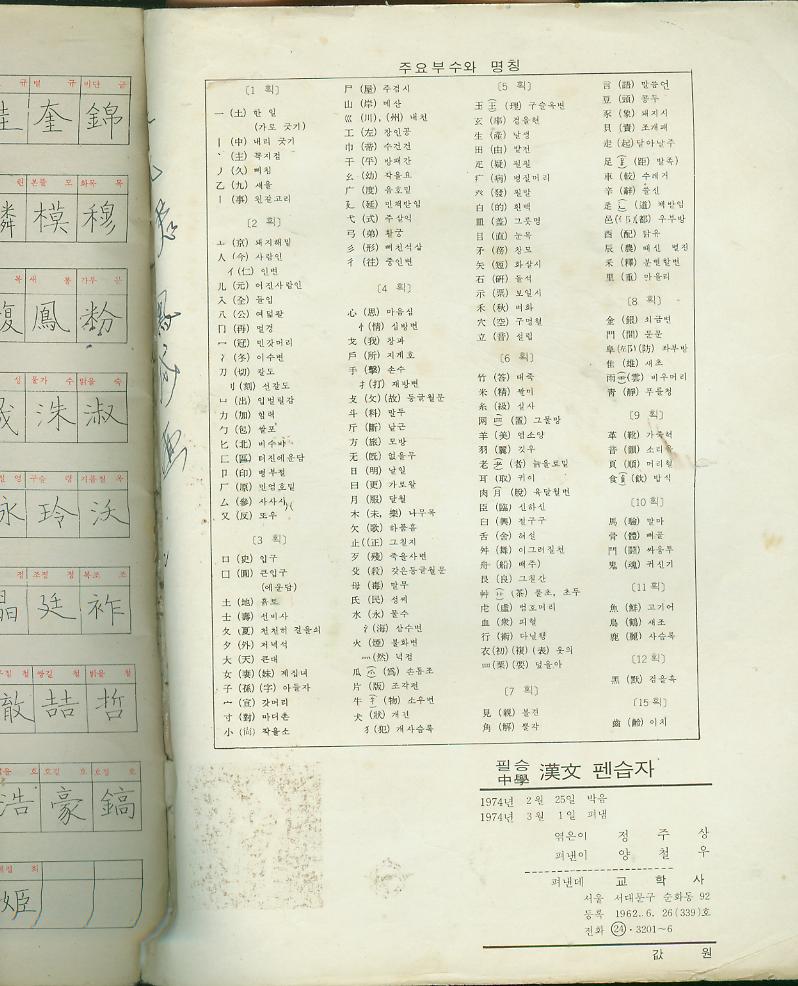 규 별 규 비단 금
奎 錦
린 본뜰 모 화목 목
模 穆
복 새 봉 가루 분
鳳 粉
성 물가 수 맑을 숙
洙 淑
영 구슬 령 기름질 옥
永 玲 沃
정 조정 정 복조 조
晶 廷 祚
철 쌍길 철 밝을 철
澈 喆 哲
호 호걸 호 호경 호
浩 豪 鎬
희
姬
주요부수와 명칭
[1 획]
一 (士) 한 일
(가로 긋기)
丨 (中) 내리 긋기
丶 (主) 쪽지점
丿 (久) 삐침
乙 (九) 새을
亅 (事) 왼갈고리
[2 획]
亠 (京) 돼지해밑
人 (今) 사람인
亻(仁) 인변
儿 (元) 어진사람인
入 (全) 들입
八 (公) 여덟팔
冂 (再) 멀경
冖 (冠) 민갓머리
冫 (冬) 이수변
刀 (切) 칼도
刂 (刻) 선칼도
凵 (出) 입벌릴감
力 (加) 힘력
勹 (包) 쌀포
匕 (北) 비수비
匸 (區) 터진에운담
卩 (印) 병부절
厂 (原) 민엄호밑
厶 (參) 사사사
又 (反) 또우
[3 획]
口 (史) 입구
囗 (圓) 큰입구
(에운담)
土 (地) 흙토
士 (壽) 선비사
夂 (夏) 천천히 걸을쇠
夕 (外) 저녁석
大 (天) 큰대
女 (妻) (妹) 계집녀
子 (孫) (字) 아들자
宀 (宜) 갓머리
寸 (對) 마디촌
小 (尙) 작을소
尸 (屋) 주검시
山 (岸) 메산
巛 (川), (州) 내천
工 (左) 장인공
巾 (帝) 수건건
干 (平) 방패간
幺 (幼) 작을요
广 (度) 음호밑
廴 (延) 민책받침
弋 (式) 주살익
弓 (弟) 활궁
彡 (形) 삐친석삼
彳 (往) 중인변
[4 획]
心 (思) 마음심
忄(情) 심방변
戈 (我) 창과
戶 (所) 지게호
手 (擊) 손수
扌(打) 재방변
攴 (攵) (故) 둥글월문
斗 (料) 말두
斤 (斷) 날근
方 (旅) 모방
无 (旣) 없을무
日 (明) 날일
曰 (更) 가로왈
月 (服) 달월
木 (未, 樂) 나무목
欠 (歌) 하품흠
止 (正) 그칠지
歹 (殘) 죽을사변
殳 (殺) 갖은둥글월문
毋 (毒) 말무
氏 (民) 성씨
水 (永) 물수
氵(海) 삼수변
火 (煙) 불화변
灬 (然) 넉점
爪 (爫) (爲) 손톱조
片 (版) 조각편
牛 (牜) (物) 소우변
犬 (狀) 개견
犭(犯) 개사슴록
[5 획]
玉 (王) (理) 구슬옥변
玄 (率) 검을현
生 (產) 날생
田 (由) 밭전
疋 (疑) 필필
疒 (病) 병질머리
癶 (發) 필발
白 (的) 흰백
皿 (盖) 그릇명
目 (直) 눈목
矛 (務) 창모
矢 (短) 화살시
石 (硏) 돌석
示 (票) 보일시
禾 (秋) 벼화
穴 (空) 구멍혈
立 (音) 설립
[6 획]
竹 (答) 대죽
米 (精) 쌀미
糸 (級) 실사
网 (罒) (置) 그물망
羊 (美) 염소양
羽 (翼) 깃우
老 (耂) (者) 늙을로밑
耳 (取) 귀이
肉 月 (脫) 육달월변
臣 (臨) 신하신
臼 (興) 절구구
舌 (舍) 혀설
舛 (舞) 이그러질천
舟 (船) 배주
艮 (良) 그칠간
艸 (艹) (茶) 풀초, 초두
虍 (虛) 범호머리
血 (衆) 피혈
行 (術) 다닐행
衣 (初) (複) (表) 옷의
襾 (栗) (要) 덮을아
[7 획]
見 (親) 볼견
角 (解) 뿔각
言 (語) 말씀언
豆 (頭) 콩두
豕 (象) 돼지시
貝 (責) 조개패
走 (起) 달아날주
足 (⻊) (距) 발족
車 (較) 수레거
辛 (辭) 쓸신
辵 (辶) (道) 책받침
邑 (阝) (都) 우부방
酉 (配) 닭유
辰 (農) 때신 별진
釆 (釋) 분별할변
里 (重) 마을리
[8 획]
金 (銀) 쇠금변
門 (開) 문문
阜 (阝) (防) 좌부방
隹 (雄) 새추
雨 (雲) 비우머리
靑 (靜) 푸를청
[9 획]
革 (靴) 가죽혁
音 (韻) 소리음
頁 (順) 머리혈
食 (飠) (飮) 밥식
[10 획]
馬 (驗) 말마
骨 (體) 뼈골
鬥 (鬪) 싸움투
鬼 (魂) 귀신기
[11 획]
魚 (鮮) 고기어
鳥 (鶴) 새조
鹿 (麗) 사슴록
[12 획]
黑 (默) 검을흑
[15 획]
齒 (齡) 이치
필승
中學 漢文 펜습자
1974년 2월 25일 박음
1974년 3월 1일 펴냄
엮은이 정 주 상
펴낸이 양 철 우
펴낸데 교 학 사
서울 서대문구 순화동 92
등록 1962. 6. 26 (339)호
전화 ㉔·3201~6
값 원